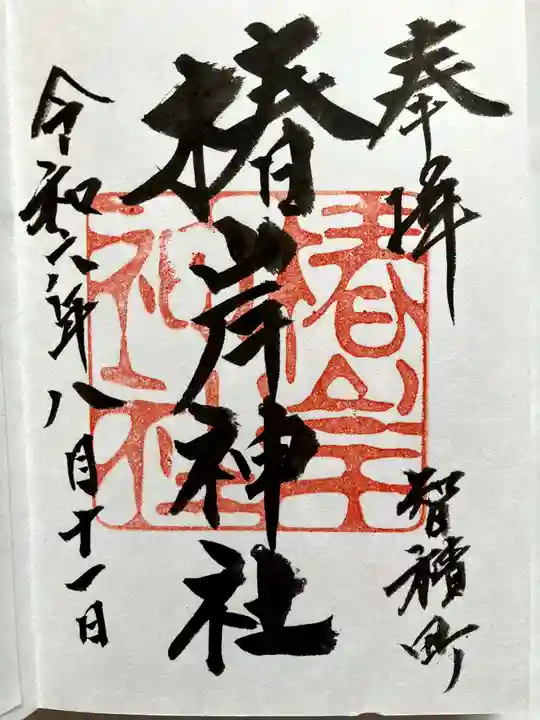 奉拝
智積町
椿岸神社
令和六年八月十一日